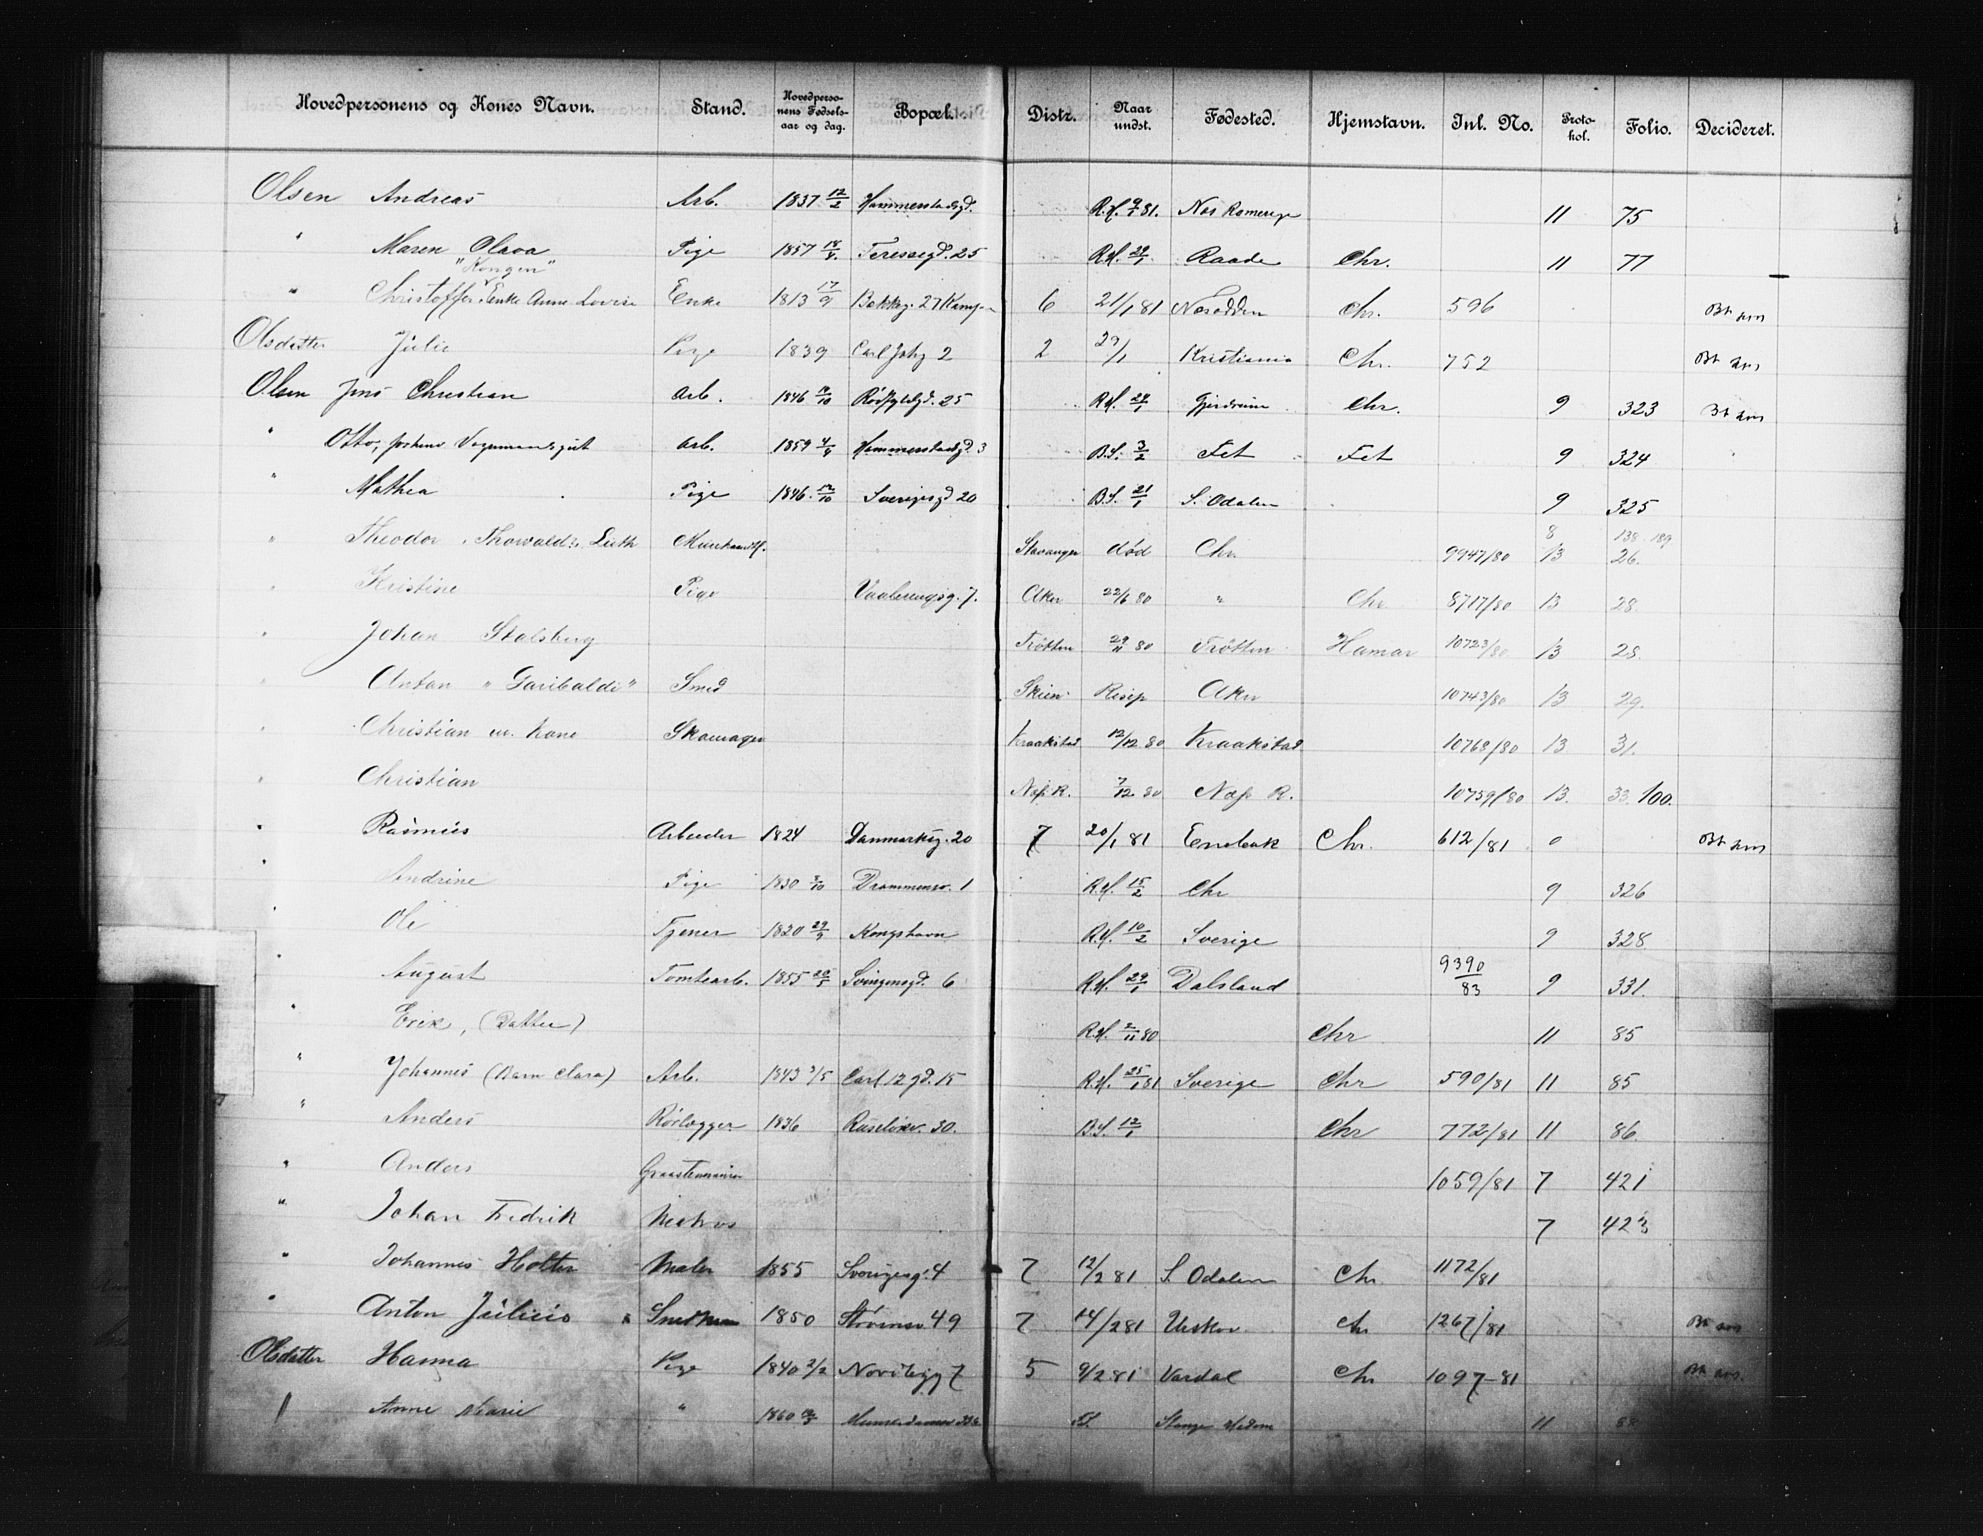 Hovedpersonens og Kones Navn. Stand. Hovedperso-nens Fødsels-aar og dag. Bopæl. Distr. Naar undst. Fødested. Hjemstavn. Inl. No. Proto-kol. Folio. Decideret.
Olsen Andreas Arb. 1837 12/2 Hammerstadgd. R.H. 9/1 81. Nes Romerige 11 75
" Maren Olava Pige 1857 18/8. Teresesgd. 25 R.H. 29/1 Raade Chr. 11 77
"Kongen"
" Christoffer, Enke Anne Lovise Enke 1813 17/9 Bekkg. 27 Kampen 6 21/1 81 Nesodden Chr. 596
Olsdatter Julie Pige 1839 Carl Johg 2 2 29/1 Kristiania Chr. 752
Olsen Jens Christian Arb. 1846 /10 Rødfyldgd. 25 R.H. 28/1 Gjerdrum Chr. 9 323
" Otto, Vognmandsgut Arb. 1859 4/9 Hammerstadgd. 3 B.S. 3/2 Fet Fet 9 324
" Mathea Pige 1846. 12/10 Sverigesgd 20 B.S. 21/1 S. Odalen 9 325
" Theodor, Thorwald Luth Murhandtl. Stavanger død Chr. 9947/80 8 13 138. 189 26.
" Kristine Pige Vaalerengsg. 7. Aker 22/6 80 " Chr 8717/80 13 28.
" Johan Stalsberg Trötten 29/11 80 Trötten Hamar 10723/80 13 28.
" Anton "Garibaldi" Smed Skien Resep Aker 10743/80 13 29.
" Christian m. Kone Skomager Kraakstad 12/12 80 Kraakstad 10768/80 13 31.
" Christian Næs R. 7/12 80 Næs R. 10759/80 13. 33. 100.
" Rasmus Arbeider 1824 Danmarksg. 20 7 20/1 81 Enebak Chr. 612/81 0
" Andrine Pige 1830 3/10 Drammensv. 1 R.H. 15/2 Chr 9 326
" Ole Tjener 1820 29/9 Kongshavn R.H. 10/2 Sverige 9 328
" August Tomtearb. 1855 20/5 Svingensgd. 6 R.H. 29/1 Dalsland 9390/83 9 331.
" Erik, (Datter) R.H. 2/11 80 Chr 11 85
" Johannes (Barn Clara) Arb. 1843 3/5 Carl 12 gd. 15 R.H. 25/1 81 Sverige Chr 590/81 11 85
" Anders Rørlægger 1836 Ruseløkv. 30. B.S. 12/1 Chr 772/81 11 86
" Anders Graastensmurer 1059/81 7 421
" Johan Fredrik Matros 7 423
" Johannes Holter Maler 1855 Sverigesg. 4 7 12/2 81 S. Odalen Chr 1172/81
" Anton Julius 1850 Strömsv 49 7 14/2 81 Urskov Chr 1267/81
Olsdatter Hanna Pige 1840 2/2 Nordbygg 7 5 9/2 81 Vardal Chr 1097-81
Anne Marie " 1860 Munkedamsv Stange Hedm 11